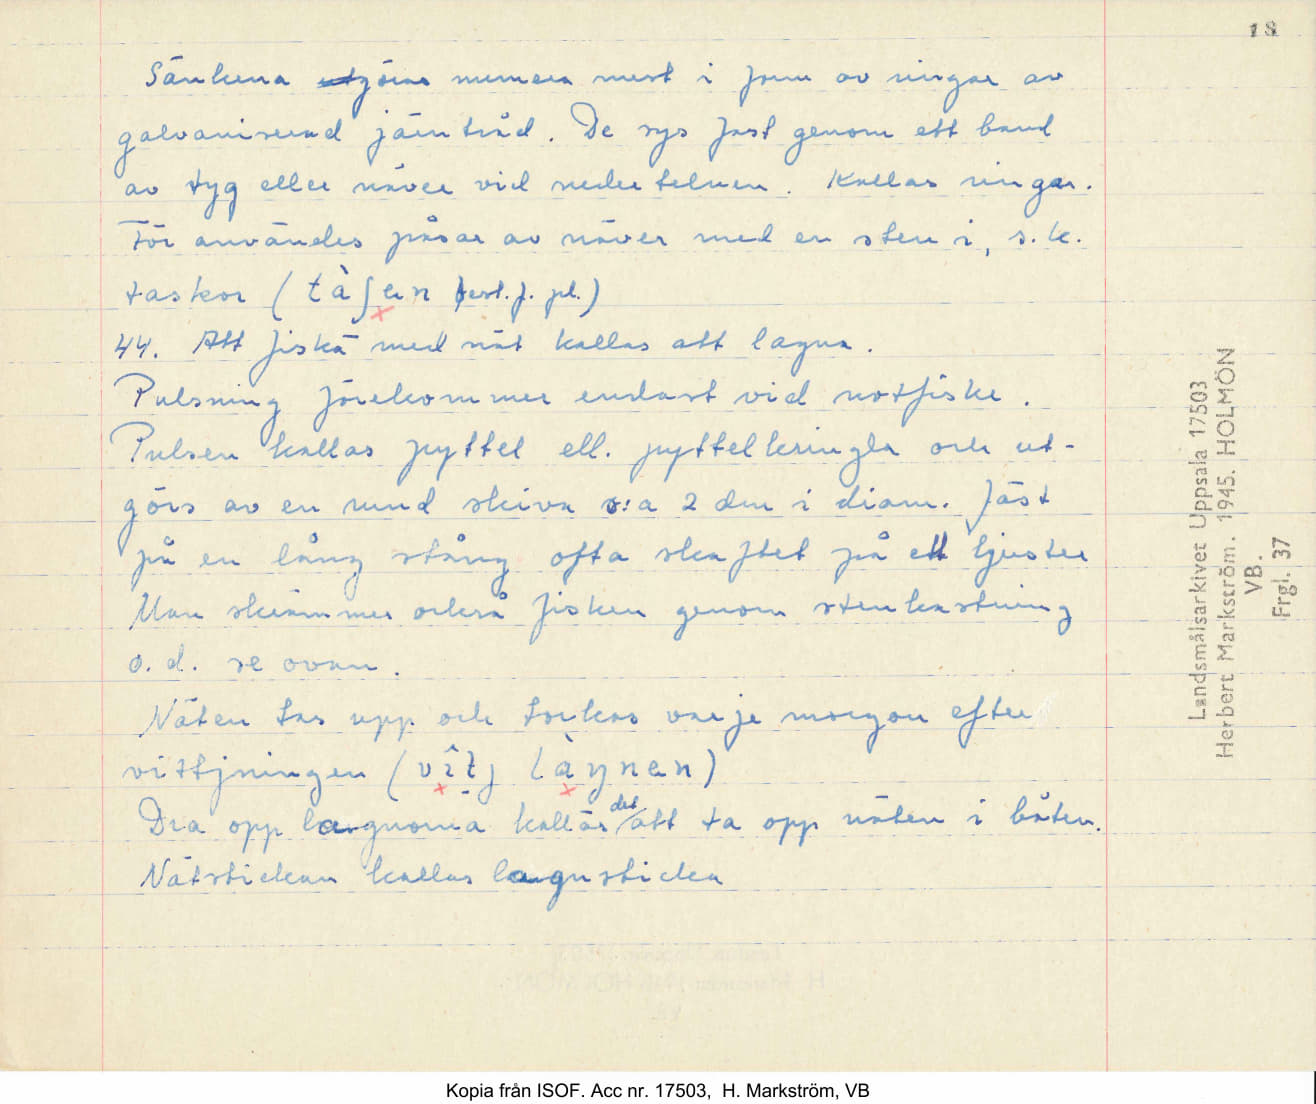 18
Sänkena utgöras numera mest i form av ringar av
galvaniserad järntråd. De sys fast genom ett band
av tyg eller näver vid nedertelnen. Kallas ringar.
Förr användes påsar av näver med en sten i, s.k.
taskor (tàʃen best. f. pl.)
44. Att fiska med nät kallas att lagna.
Pulsning förekommer endast vid notfiske.
Pulsen kallas pyttel ell. pyttelkringla och ut-
görs av en rund skiva c:a 2 dm i diam. fäst
på en lång stång ofta skaftet på ett ljuster
Man skrämmer också fisken genom stenkastning
o.d. se ovan.
Näten tas upp och torkas varje morgon efter
vittjningen (
Dra opp lagnoma kallas det att ta opp näten i båten.
Nätstickan kallas lagnsticka
Landsmålsarkivet Uppsala 17503
Herbert Markström. 1945. HOLMÖN
VB.
Frgl. 37
Kopia från ISOF. Acc nr. 17503, H. Markström, VB